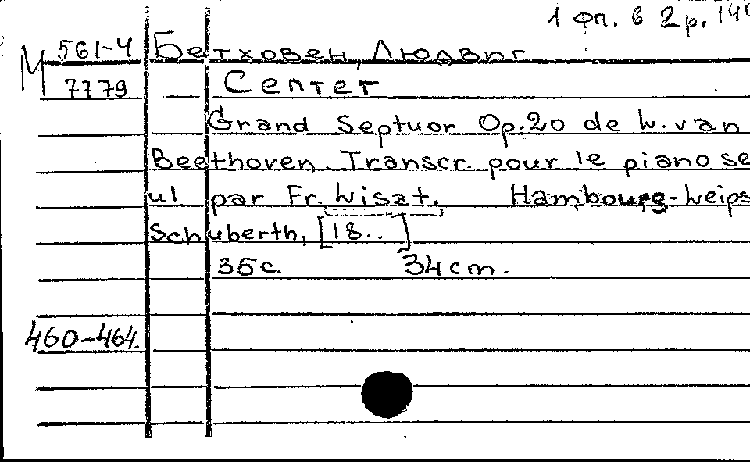 1 фп. в 2 р.
М 561-4 Бетховен, Людвиг
7779 Септет
Grand Septuor Op.20 de L. van
Beethoven. Transcr. pour le piano se
ul par Fr. Liszt. Hambourg-Leips
Schuberth, [18..]
35 с. 34 cm.
460-464.